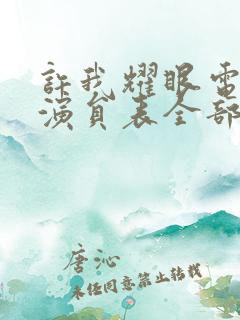 許我耀眼電
演員表全部
唐沁
未经同意禁止转载